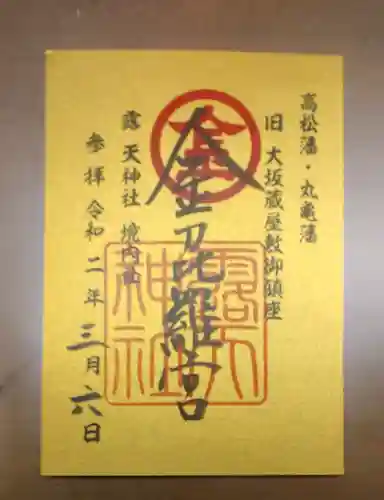 高松藩・丸亀藩
旧 大坂蔵屋敷御鎮座
金
金刀比羅宮
露 天神社 境内社
露天神社
参拝 令和二年 三月六日